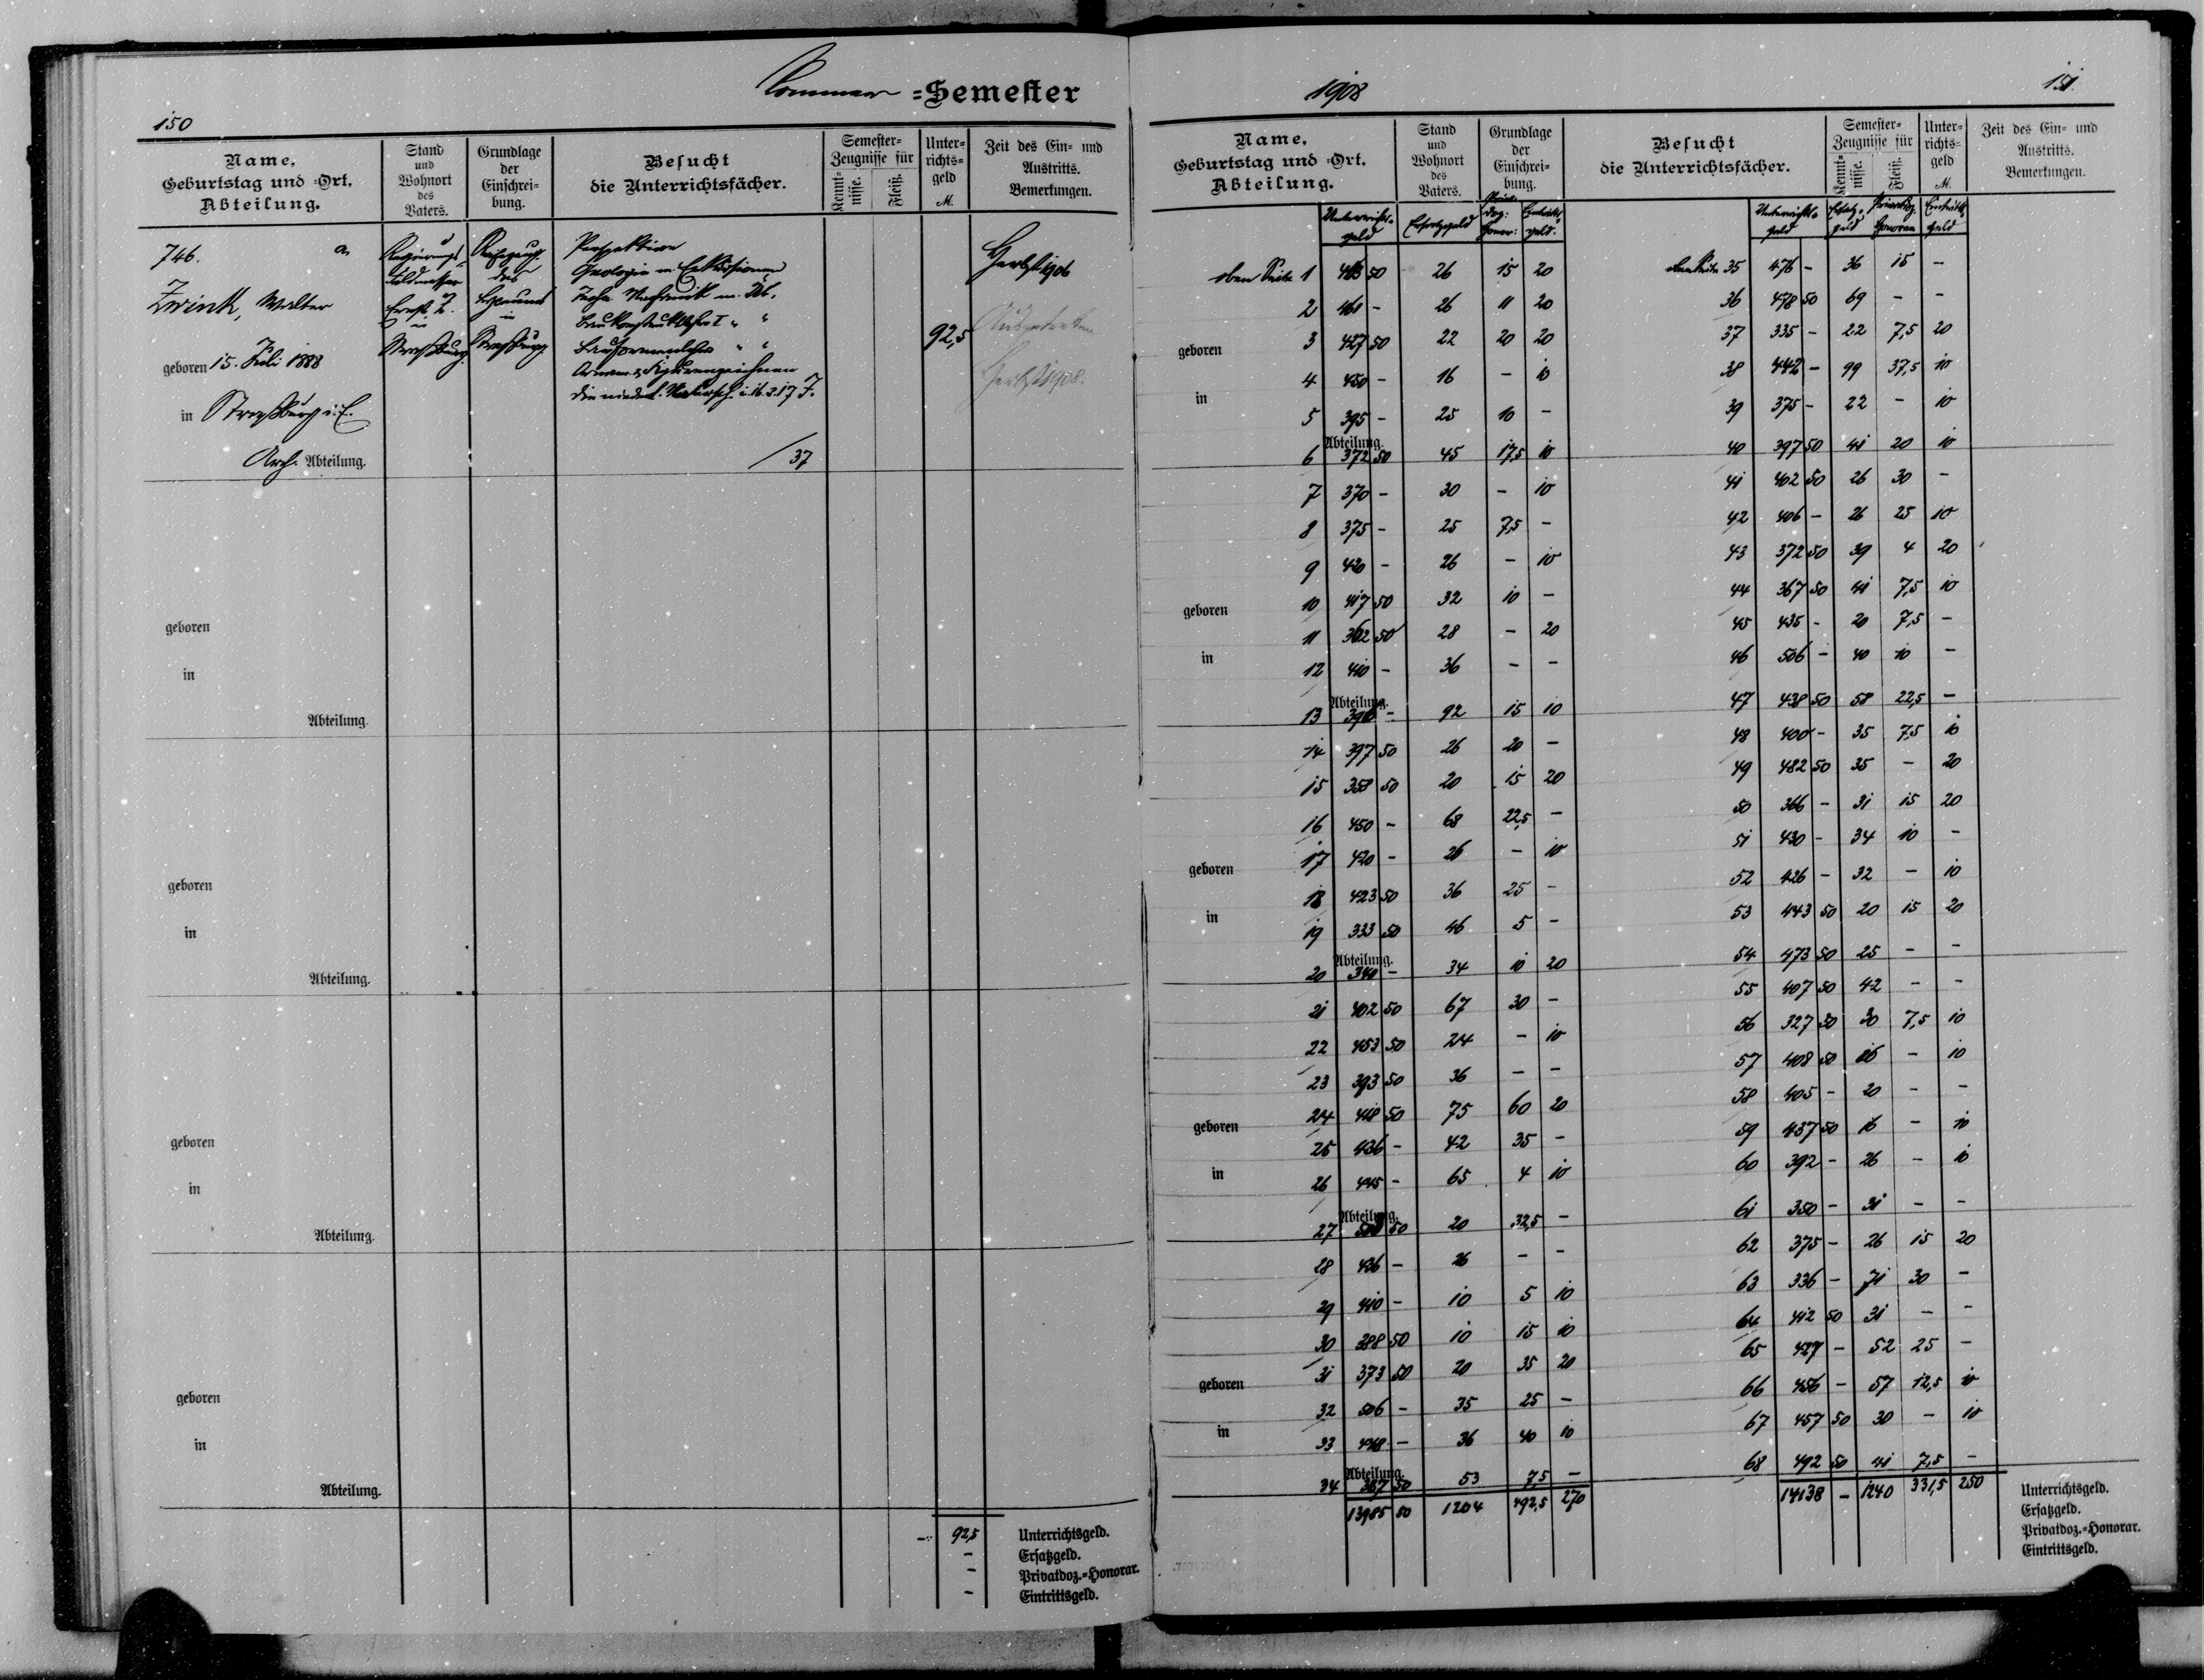 Sommer =Semester
150
Name, Geburtstag und =Ort. Abteilung.
Stand und Wohnort des Vaters.
Grundlage der Einschrei=bung.
Besucht die Unterrichtsfächer.
Semester=Zeugnisse für
Kennt=nisse.
Fleiß.
Unter=richts=geld M.
Zeit des Ein= und Austritts. Bemerkungen.
746. a
Zwink, Walter
geboren 15. Juli 1888
in Straßburg i. E.
Arch. Abteilung.
Regierungs
feldmesser
Ernst Z.
in
Straßburg.
Reifezeug.
des
in
Straßburg
Perspektive
Geologie m. Exkursionen
Techn. Mechanik m. Üb.
Baukonstruktlehre I " "
Bauformenlehre " "
Ornam. & Figurenzeichnen
37
92,5
Herbst 1906
Ausgetreten
Herbst 1908.
geboren
in
Abteilung.
geboren
in
Abteilung.
geboren
in
Abteilung.
geboren
in
Abteilung.
92,5 Unterrichtsgeld.
- Ersatzgeld.
- Privatdoz.=Honorar.
- Eintrittsgeld.
1908
151.
Name, Geburtstag und =Ort. Abteilung.
Stand und Wohnort des Vaters.
Grundlage der Einschrei=bung.
Besucht die Unterrichtsfächer.
Semester=Zeugnisse für
Kennt=nisse.
Fleiß.
Unter=richts=geld M.
Zeit des Ein= und Austritts. Bemerkungen.
Unterrichts-geld
Ersatzgeld
Honor:
Eintritts-geld.
oben Seite 1 50 26 15 20
2 461 - 26 11 20
geboren 3 427 50 22 20 20
4 450 - 16 - 10
in
5 395 - 25 10 -
Abteilung.
6 372 50 45 17,5 10
7 370 - 30 - 10
8 375 - 25 7,5 -
9 420 - 26 - 10
geboren 10 417 50 32 10 -
11 362 50 28 - 20
in
12 410 - 36 - -
Abteilung.
13 396 - 92 15 10
14 397 50 26 20 -
15 358 50 20 15 20
16 450 - 68 22,5 -
geboren 17 420 - 26 - 10
18 423 50 36 25 -
in
19 333 50 46 5 -
Abteilung.
20 340 - 34 10 20
21 402 50 67 30 -
22 453 50 24 - 10
23 393 50 36 - -
geboren 24 418 50 75 60 20
25 436 - 42 35 -
in 26 445 - 65 4 10
Abteilung.
27 50 20 32,5 -
28 436 - 26 - -
29 410 - 10 5 10
30 388 50 10 15 10
geboren 31 373 50 20 35 20
32 506 - 35 25 -
in 33 448 - 36 40 10
Abteilung.
34 387 50 53 7,5 -
13985 50 1204 492,5 270
Unterrichts-geld
Ersatz-geld
Honorar
Eintritts-geld
oben Seite 35 476 - 36 15 -
36 478 50 69 - -
37 335 - 22 7,5 20
38 442 - 99 37,5 10
39 375 - 22 - 10
40 397 50 41 20 10
41 402 50 26 30 -
42 406 - 26 25 10
43 372 50 39 4 20
44 367 50 41 7,5 10
45 435 - 20 7,5 -
46 506 - 40 10 -
47 438 50 58 22,5 -
48 400 - 35 7,5 10
49 482 50 35 - 20
50 366 - 31 15 20
51 430 - 34 10 -
52 426 - 32 - 10
53 443 50 20 15 20
54 473 50 25 - -
55 407 50 42 - -
56 327 50 30 7,5 10
57 408 50 26 - 10
58 405 - 20 - -
59 437 50 16 - 10
60 392 - 26 - 10
61 350 - 31 - -
62 375 - 26 15 20
63 336 - 71 30 -
64 412 50 31 - -
65 427 - 52 25 -
66 456 - 57 12,5 10
67 457 50 30 - 10
68 492 50 41 7,5 -
14138 - 1240 331,5 250
Unterrichtsgeld.
Ersatzgeld.
Privatdoz.=Honorar.
Eintrittsgeld.